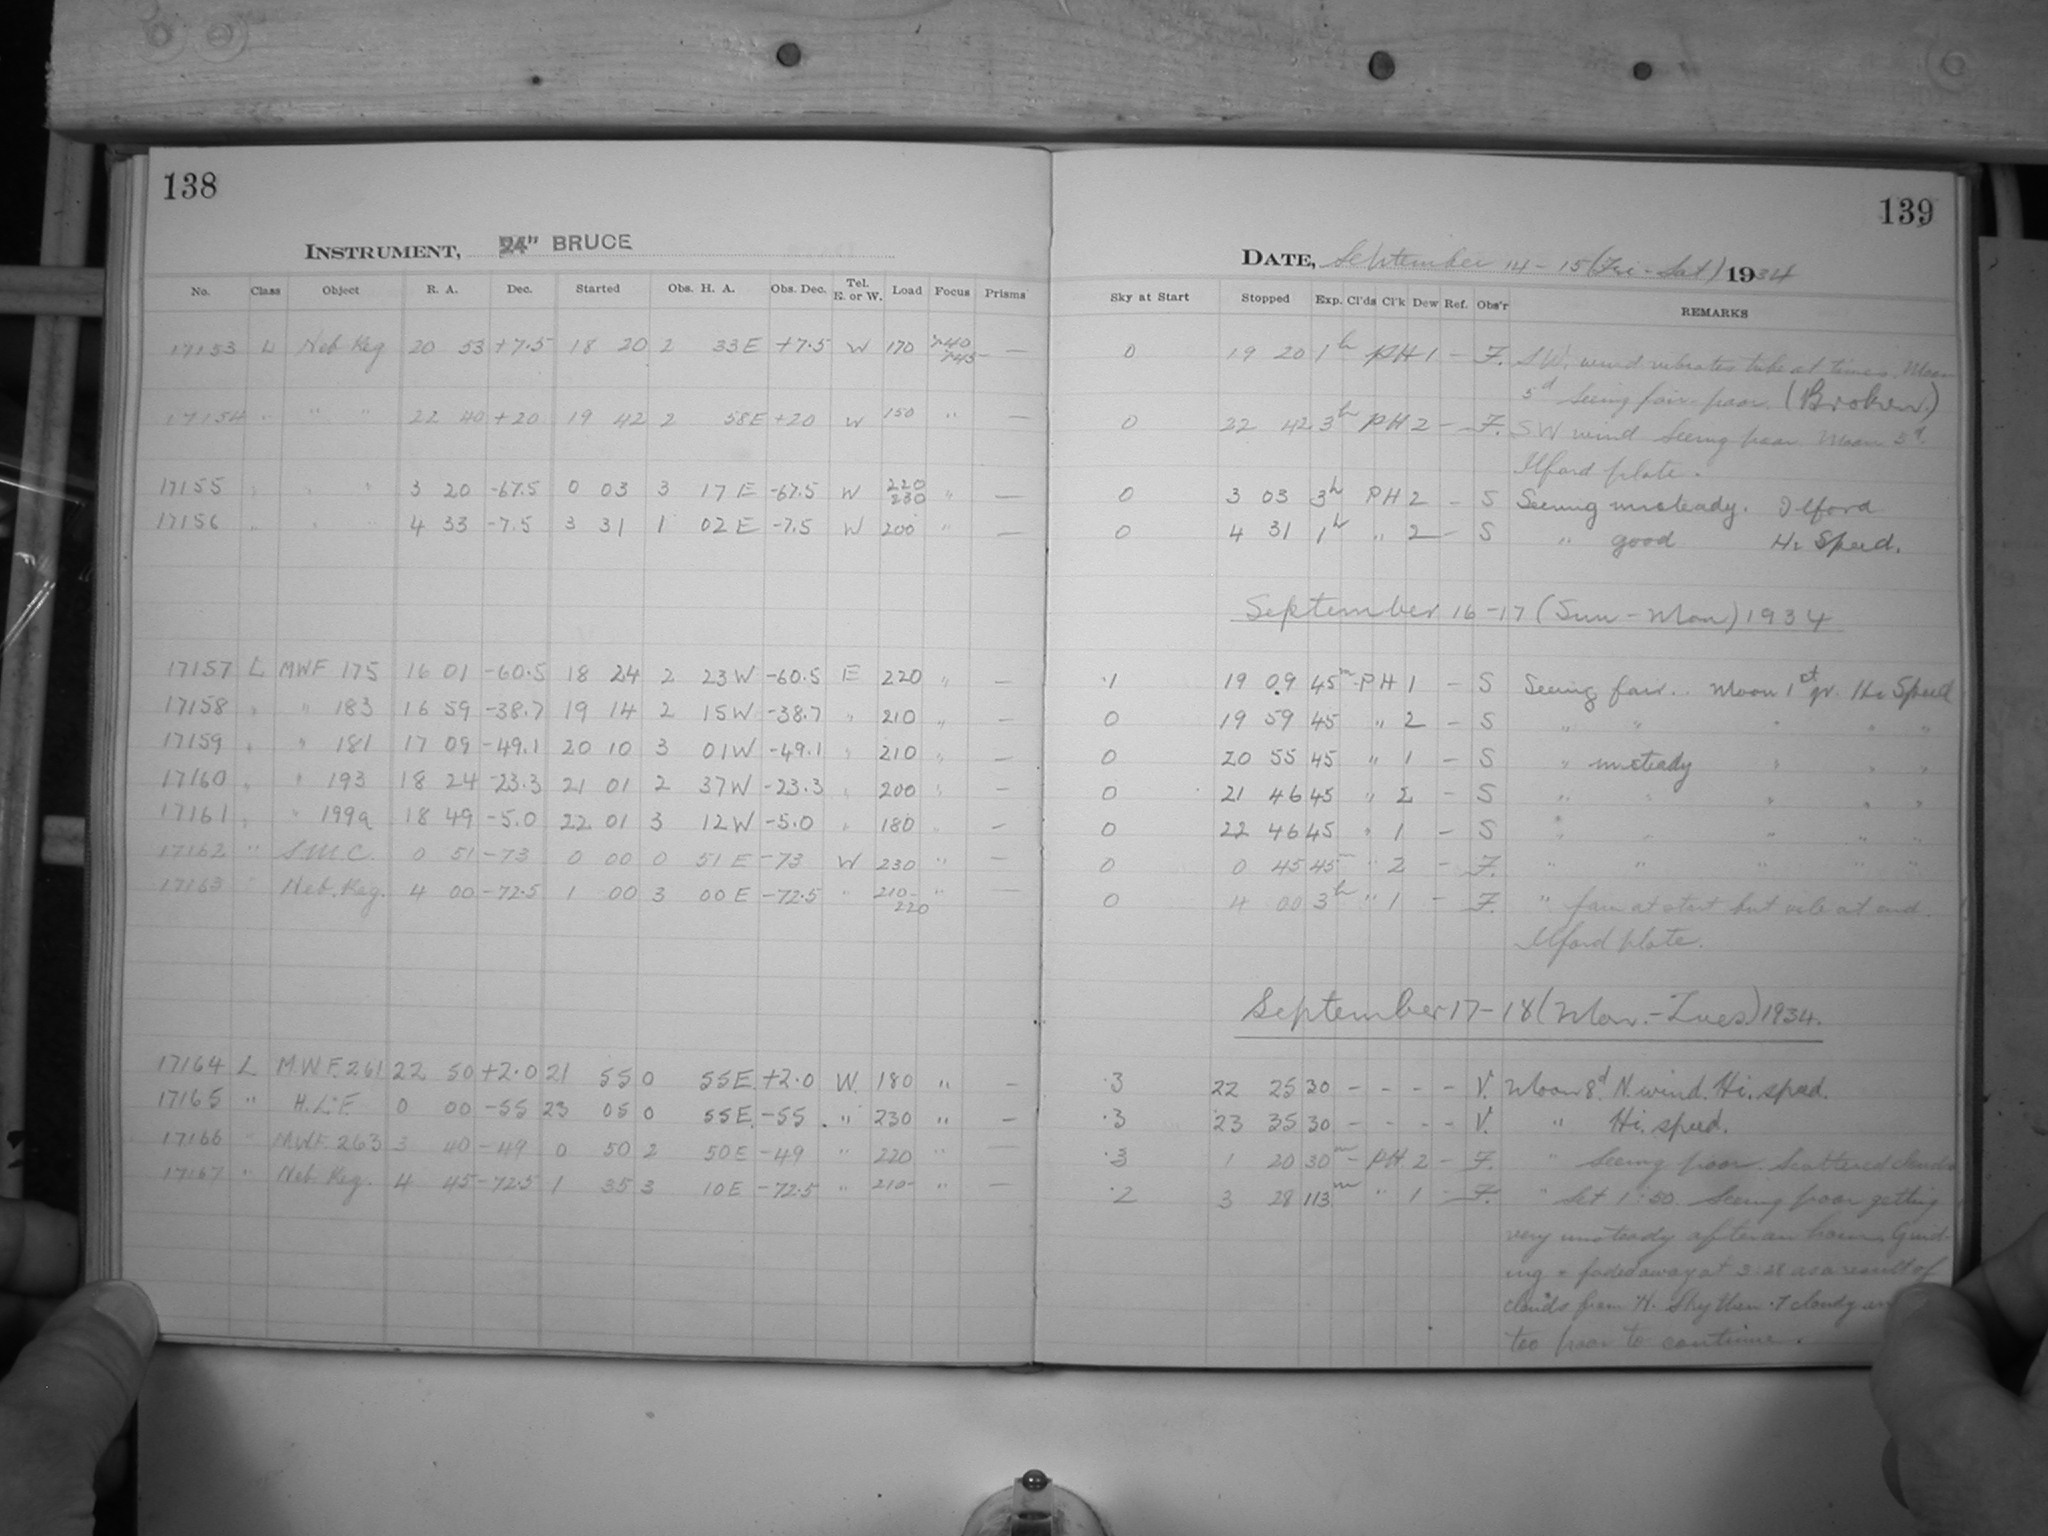 138
139
INSTRUMENT, 24" BRUCE
DATE, September 14-15 (Fri-Sat) 1934
No. Class Object R. A. Dec. Started Obs. H. A. Obs. Dec. Tel. E. or W. Load Focus Prisms Sky at Start Stopped Exp. Cl'ds Cl'k Dew Ref. Obs'r REMARKS
17153 L Neb. Reg 20 53 +7.5 18 20 2 33 E +7.5 W 170 740 745 — 0 19 20 1h PH 1 - F. SW. wind vibrates tube at times. Moon
5d Seeing fair-poor. (Broken)
17154 " " " 22 40 +20 19 42 2 58 E +20 W 150 " — 0 22 42 3h PH 2 - F. SW wind Seeing poor Moon 5d.
Ilford plate.
17155 " " " 3 20 -67.5 0 03 3 17 E -67.5 W 220 230 " — 0 3 03 3h PH 2 - S Seeing unsteady. Ilford
17156 " " " 4 33 -7.5 3 31 1 02 E -7.5 W 200 " — 0 4 31 1h " 2 - S " good Hi Speed.
September 16-17 (Sun-Mon) 1934
17157 L MWF 175 16 01 -60.5 18 24 2 23 W -60.5 E 220 " — .1 19 09 45m PH 1 - S Seeing fair. Moon 1st qr. Hi Speed
17158 " " 183 16 59 -38.7 19 14 2 15 W -38.7 " 210 " — 0 19 59 45 " 2 - S " " " " "
17159 " " 181 17 09 -49.1 20 10 3 01 W -49.1 " 210 " — 0 20 55 45 " 1 - S " unsteady " " "
17160 " " 193 18 24 -23.3 21 01 2 37 W -23.3 " 200 " — 0 21 46 45 " 2 - S " " " " "
17161 " " 199a 18 49 -5.0 22 01 3 12 W -5.0 " 180 " — 0 22 46 45 " 1 - S " " " " "
17162 " S.M.C. 0 51 -73 0 00 0 51 E -73 W 230 " — 0 0 45 45m " 2 - F. " " " " "
17163 " Neb. Reg. 4 00 -72.5 1 00 3 00 E -72.5 " 210- 220 " — 0 4 00 3h " 1 - F. " fair at start but vile at end.
Ilford plate.
September 17-18 (Mon.-Tues) 1934.
17164 L M.W.F. 261 22 50 +2.0 21 55 0 55 E. +2.0 W. 180 " — .3 22 25 30 - - - - V. Moon 8d. N wind. Hi. speed.
17165 " H.L.F. 0 00 -55 23 05 0 55 E. -55 " 230 " — .3 23 35 30 - - - - V. " Hi. speed.
17166 " M.W.F. 263 3 40 -49 0 50 2 50 E -49 " 220 " — .3 1 20 30m - PH 2 - F. " Seeing poor. Scattered clouds
17167 " Neb. Reg. 4 45 -72.5 1 35 3 10 E -72.5 " 210- " — .2 3 28 113m " 1 - F. " Set 1:50. Seeing poor getting
very unsteady after an hour. Guid-
ing * faded away at 3:28 as a result of
clouds from N. Sky then .7 cloudy
too poor to continue.